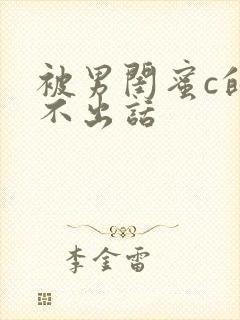 被男闺蜜c的
不出话
李金雷